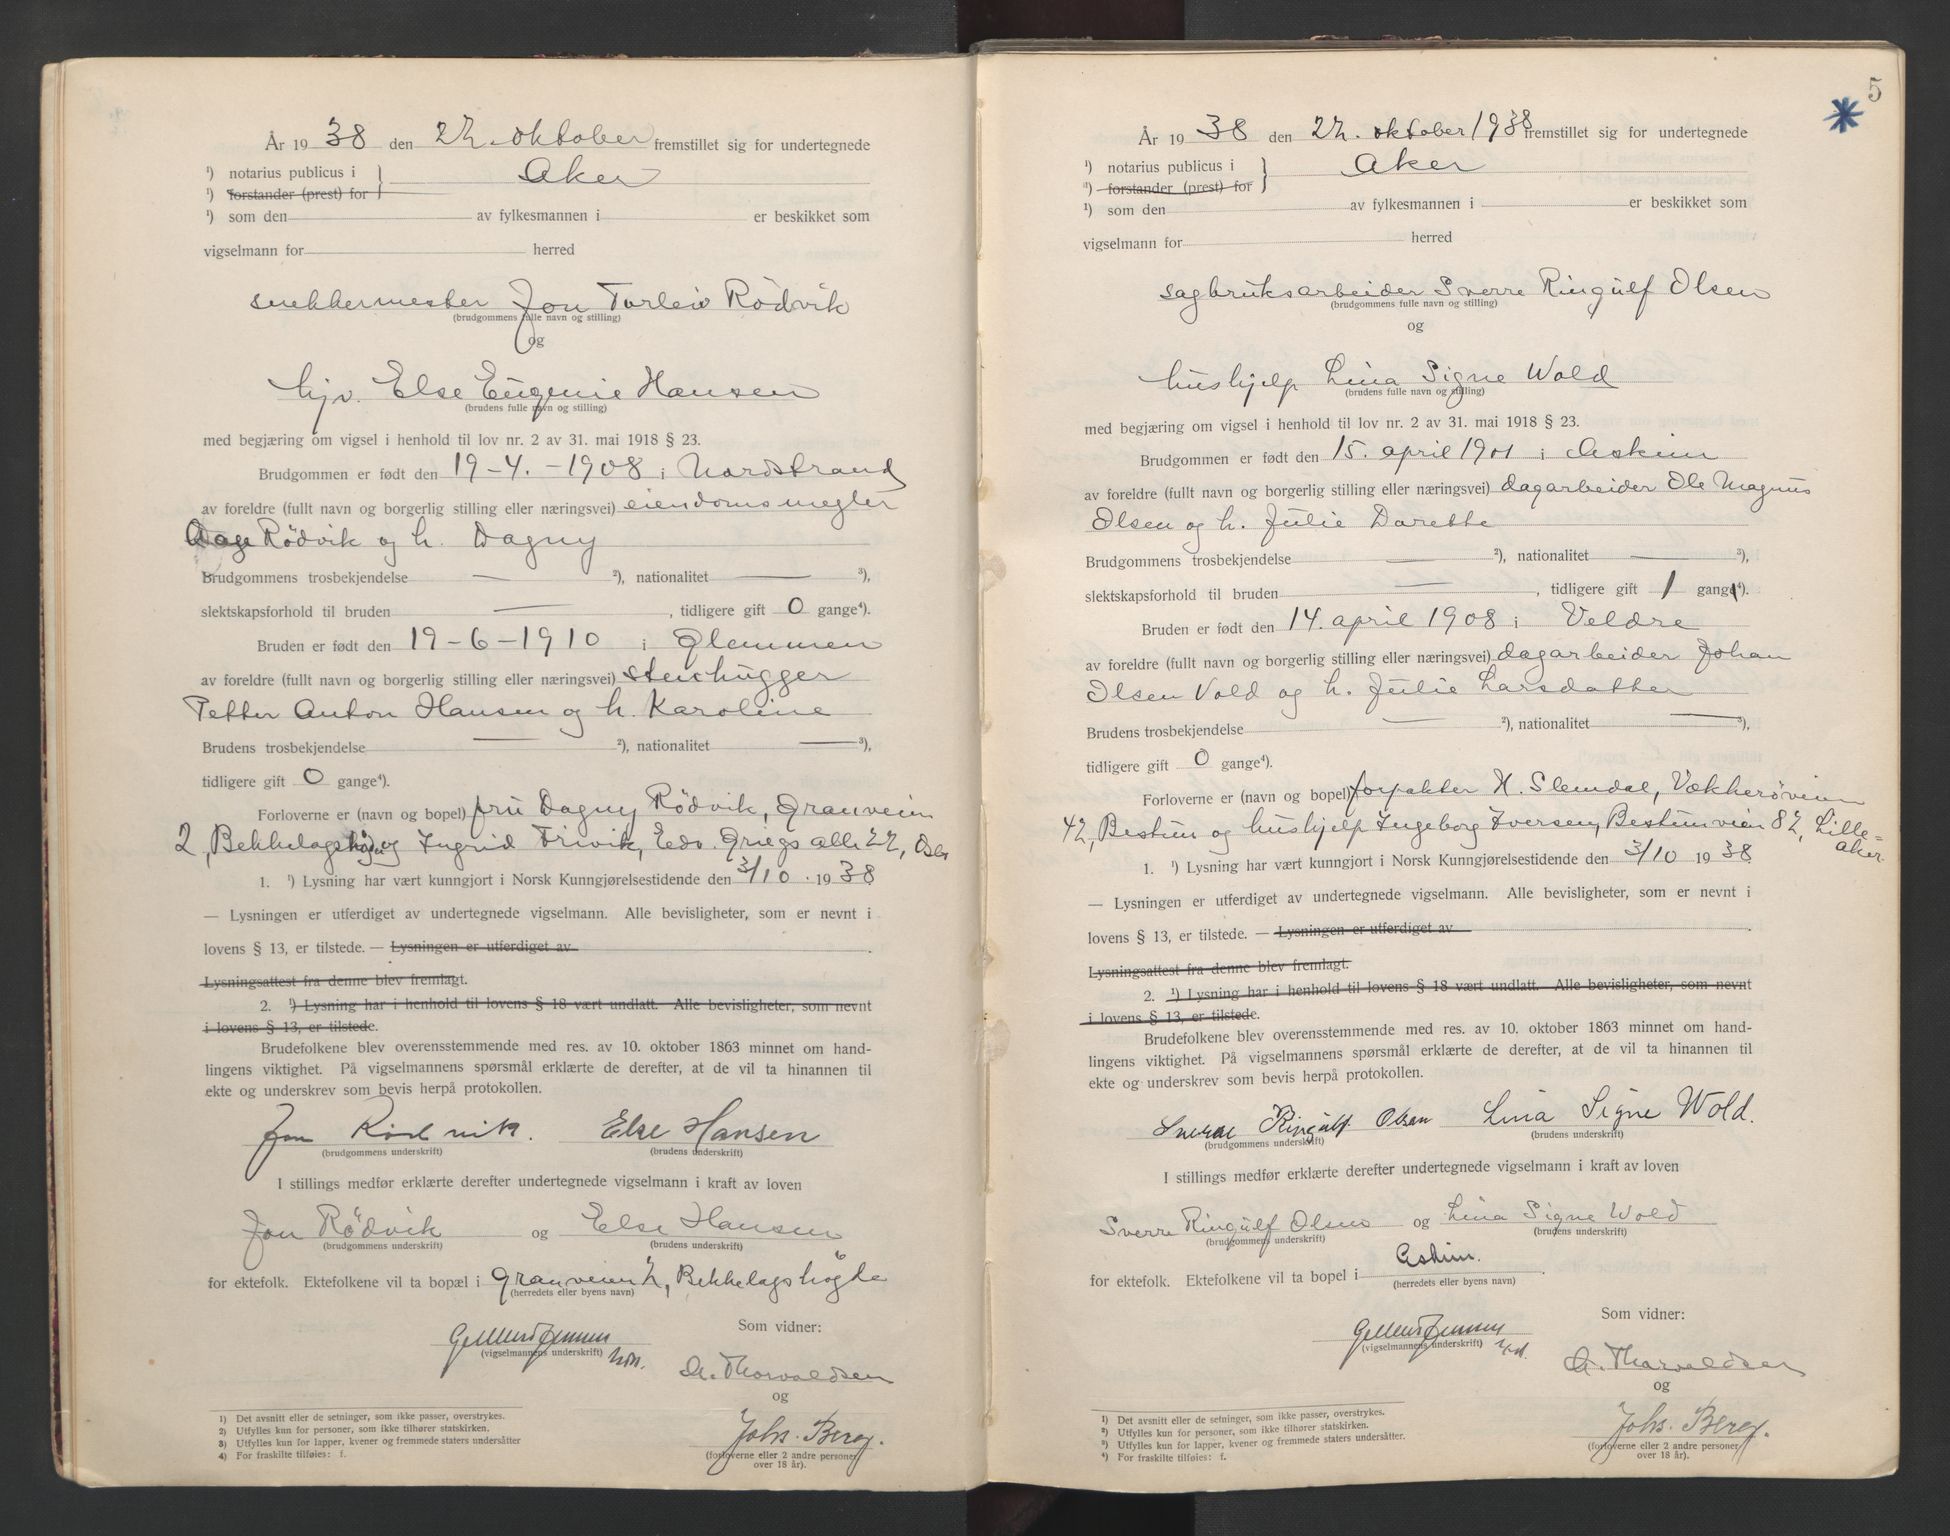 År 19 38 den 22. oktober fremstillet sig for undertegnede
¹) notarius publicus i } Aker
¹) forstander (prest) for
¹) som den av fylkesmannen i er beskikket som
vigselmann for herred
snekkermester Jon Torleiv Rödvik
(brudgommens fulle navn og stilling)
og
hjv. Else Eugenie Hansen
(brudens fulle navn og stilling)
med begjæring om vigsel i henhold til lov nr. 2 av 31. mai 1918 § 23.
Brudgommen er født den 19-4.-1908 i Nordstrand
av foreldre (fullt navn og borgerlig stilling eller næringsvei) eiendomsmegler
Aage Rödvik og h. Dagny
Brudgommens trosbekjendelse — ²), nationalitet — ³),
slektskapsforhold til bruden — , tidligere gift 0 gange⁴).
Bruden er født den 19-6-1910 i Glemmen
av foreldre (fullt navn og borgerlig stilling eller næringsvei) stenhugger
Petter Anton Hansen og h. Karoline
Brudens trosbekjendelse — ²), nationalitet — ³),
tidligere gift 0 gange⁴).
Forloverne er (navn og bopel) fru Dagny Rödvik, Granveien
2, Bekkelagshögda og Ingrid Trivik, Edv. Griegs alle 22, Oslo
1. ¹) Lysning har vært kunngjort i Norsk Kunngjørelsestidende den 3/10. 19 38
— Lysningen er utferdiget av undertegnede vigselmann. Alle bevisligheter, som er nevnt i
lovens § 13, er tilstede. — Lysningen er utferdiget av .
Lysningsattest fra denne blev fremlagt.
2. ¹) Lysning har i henhold til lovens § 18 vært undlatt. Alle bevisligheter, som nevnt
i lovens § 13, er tilstede.
Brudefolkene blev overensstemmende med res. av 10. oktober 1863 minnet om hand-
lingens viktighet. På vigselmannens spørsmål erklærte de derefter, at de vil ta hinannen til
ekte og underskrev som bevis herpå protokollen.
Jon Rödvik. Else Hansen
(brudgommens underskrift) (brudens underskrift)
I stillings medfør erklærte derefter undertegnede vigselmann i kraft av loven
Jon Rödvik og Else Hansen
(brudgommens underskrift) (brudens underskrift)
for ektefolk. Ektefolkene vil ta bopæl i Granveien 2, Bekkelagshögda
(herredets eller byens navn)
Som vidner:
(vigselmannens underskrift)
A. Thorvaldsen
og
Johs. Berg.
(forloverne eller 2 andre personer
over 18 år).
1) Det avsnitt eller de setninger, som ikke passer, overstrykes.
2) Utfylles kun for personer, som ikke tilhører statskirken.
3) Utfylles kun for lapper, kvener og fremmede staters undersåtter
4) For fraskilte tilføies: f.
5
År 19 38 den 22. oktober 1938 fremstillet sig for undertegnede
¹) notarius publicus i } Aker
¹) forstander (prest) for
¹) som den av fylkesmannen i er beskikket som
vigselmann for herred
sagbruksarbeider Sverre Ringulf Olsen
(brudgommens fulle navn og stilling)
og
hushjelp Lina Signe Wold
(brudens fulle navn og stilling)
med begjæring om vigsel i henhold til lov nr. 2 av 31. mai 1918 § 23.
Brudgommen er født den 15. april 1901 i Askim
av foreldre (fullt navn og borgerlig stilling eller næringsvei) dagarbeider Ole Magnus
Olsen og h. Julie Dorette
Brudgommens trosbekjendelse — ²), nationalitet — ³),
slektskapsforhold til bruden — , tidligere gift 1 gang⁴).
Bruden er født den 14. april 1908 i Veldre
av foreldre (fullt navn og borgerlig stilling eller næringsvei) dagarbeider Johan
Olsen Vold og h. Julie Larsdatter
Brudens trosbekjendelse — ²), nationalitet — ³),
tidligere gift 0 gange⁴).
Forloverne er (navn og bopel) forpakter H. Slemdal, Vækkeröveien
42, Bestun og hushjelp Ingeborg Iversen, Bestunveien 82, Lille-
aker.
1. ¹) Lysning har vært kunngjort i Norsk Kunngjørelsestidende den 3/10 19 38
— Lysningen er utferdiget av undertegnede vigselmann. Alle bevisligheter, som er nevnt i
lovens § 13, er tilstede. — Lysningen er utferdiget av .
Lysningsattest fra denne blev fremlagt.
2. ¹) Lysning har i henhold til lovens § 18 vært undlatt. Alle bevisligheter, som nevnt
i lovens § 13, er tilstede.
Brudefolkene blev overensstemmende med res. av 10. oktober 1863 minnet om hand-
lingens viktighet. På vigselmannens spørsmål erklærte de derefter, at de vil ta hinannen til
ekte og underskrev som bevis herpå protokollen.
Sverre Ringulf Olsen Lina Signe Wold.
(brudgommens underskrift) (brudens underskrift)
I stillings medfør erklærte derefter undertegnede vigselmann i kraft av loven
Sverre Ringulf Olsen og Lina Signe Wold
(brudgommens underskrift) (brudens underskrift)
for ektefolk. Ektefolkene vil ta bopel i Askim.
(herredets eller byens navn)
Som vidner:
(vigselmannens underskrift)
A. Thorvaldsen
og
Johs. Berg.
(forloverne eller 2 andre personer
over 18 år).
1) Det avsnitt eller de setninger, som ikke passer, overstrykes.
2) Utfylles kun for personer, som ikke tilhører statskirken.
3) Utfylles kun for lapper, kvener og fremmede staters undersåtter.
4) For fraskilte tilføies: f.